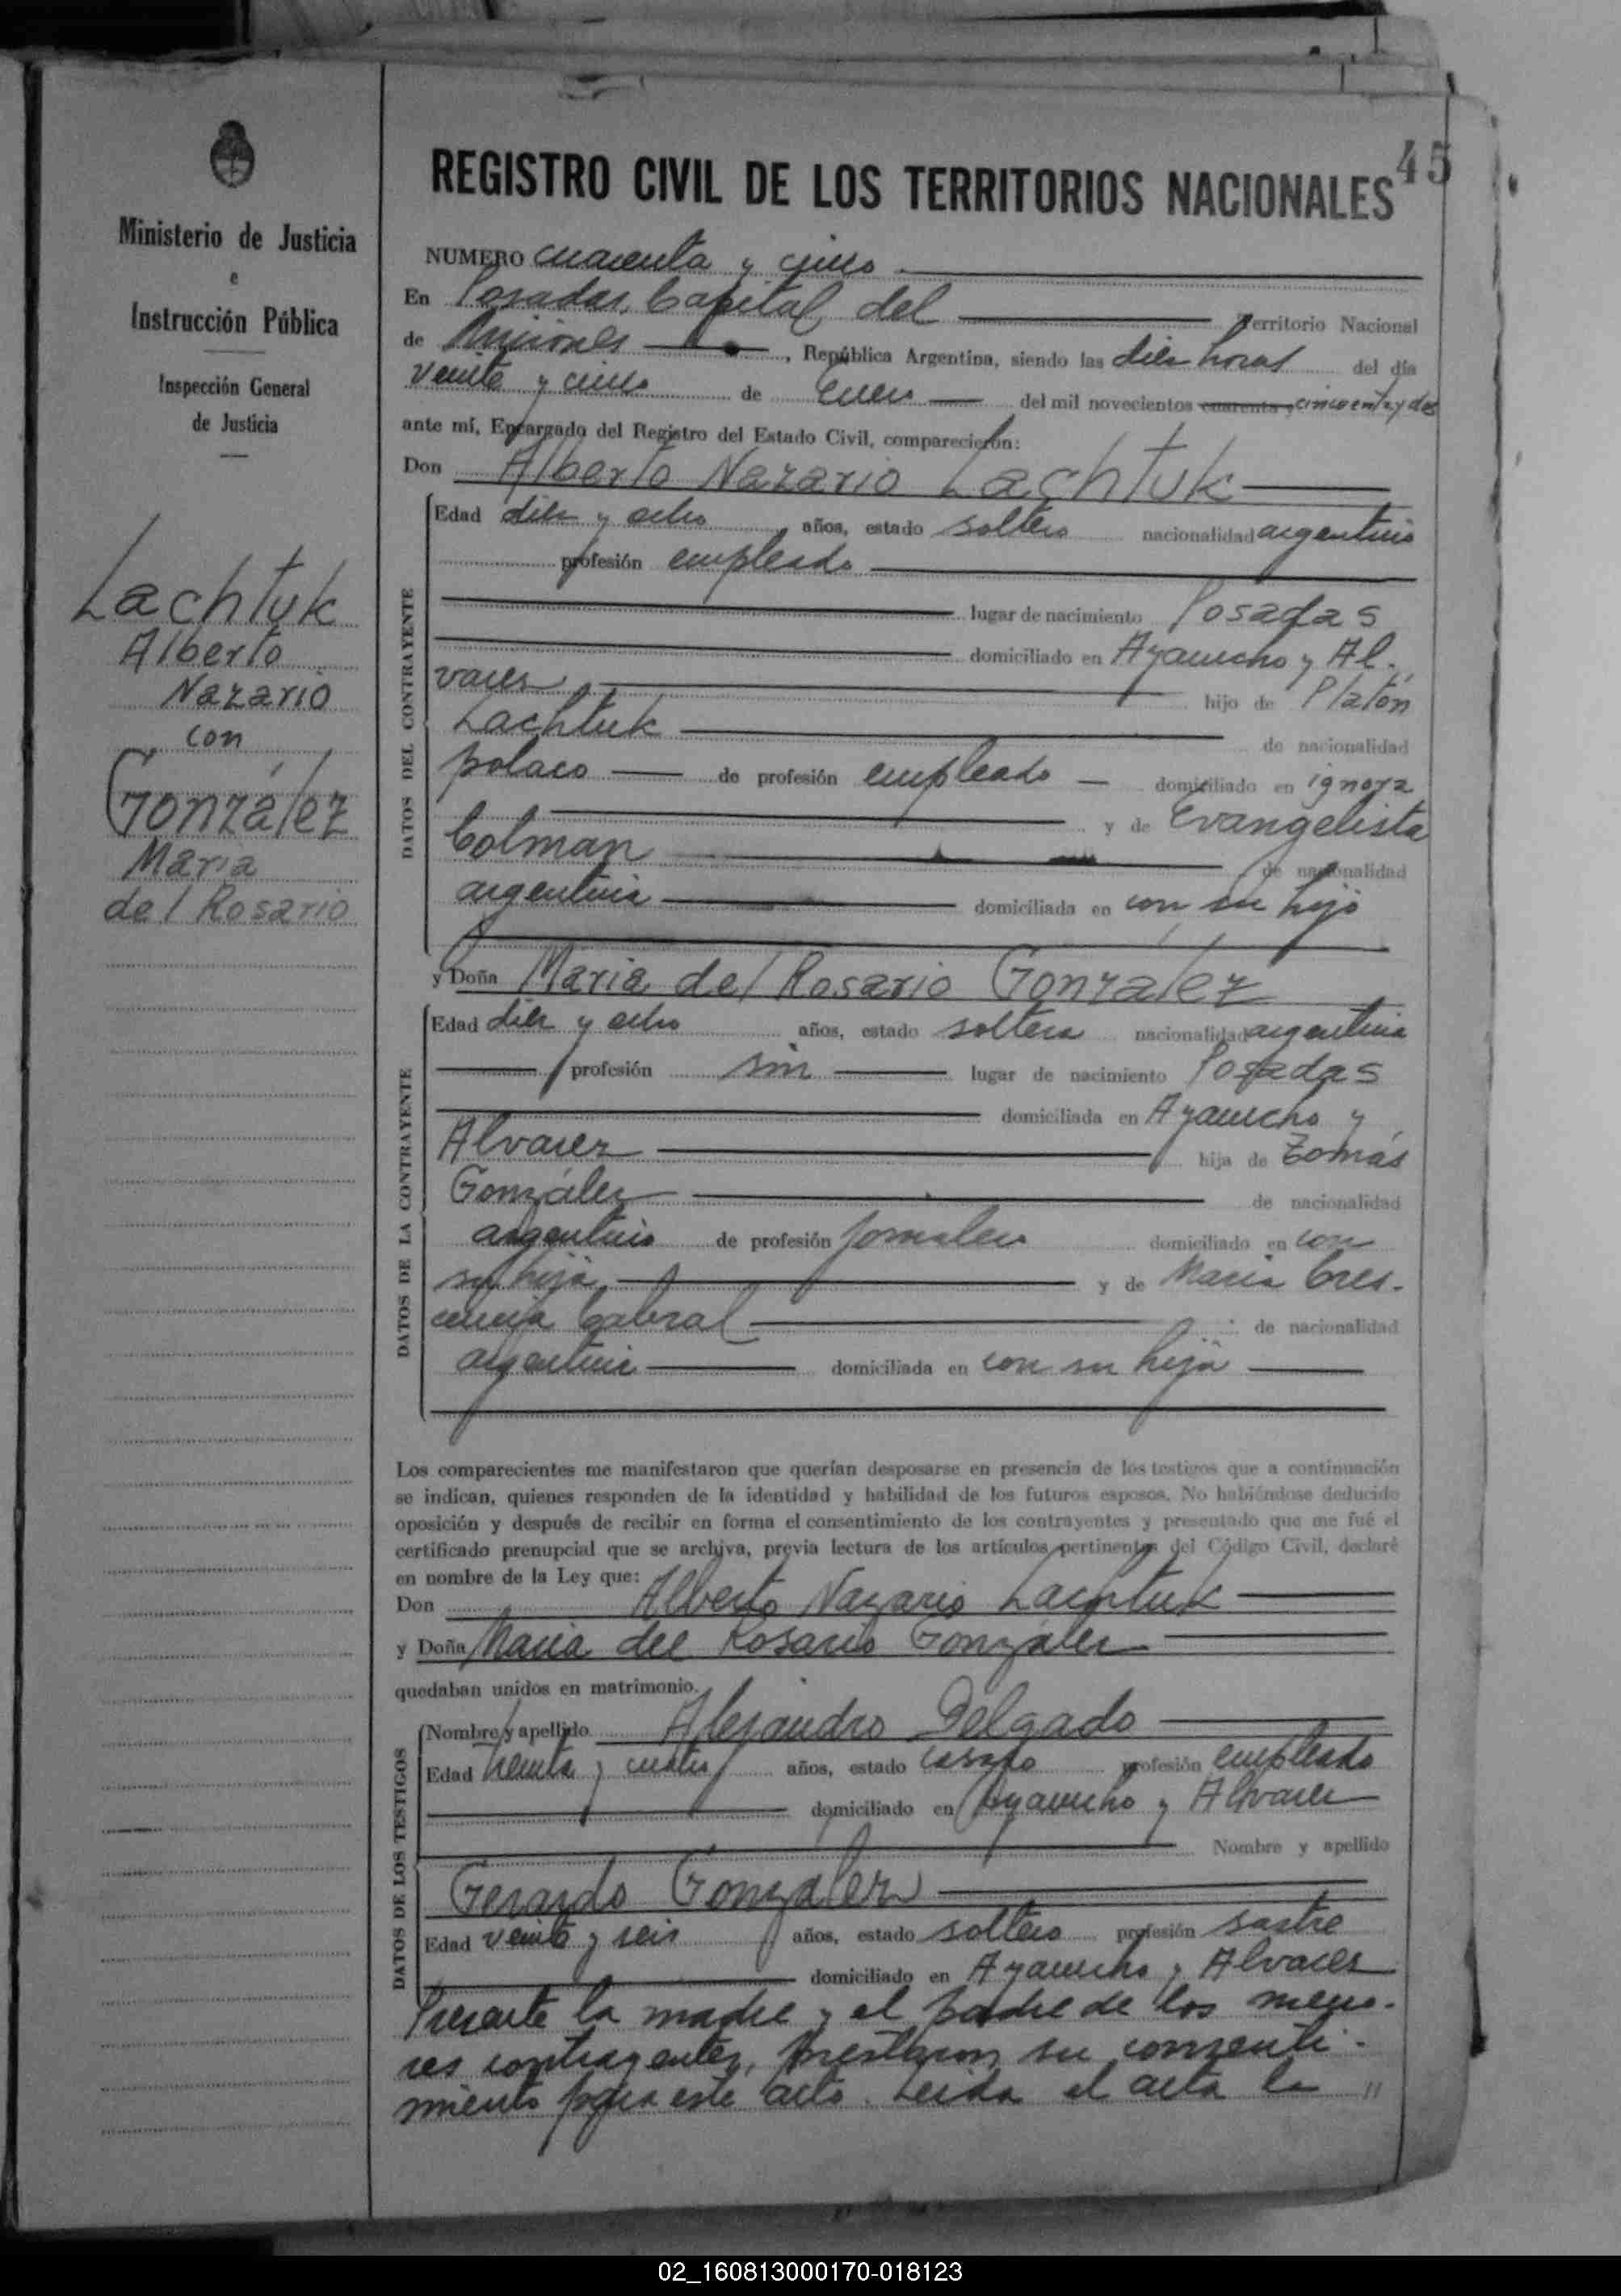 45
Ministerio de Justicia
e
Instrucción Pública
Inspección General
de Justicia
Lachtuk
Alberto
Nazario
con
González
Maria
del Rosario
REGISTRO CIVIL DE LOS TERRITORIOS NACIONALES
NUMERO cuarenta y cinco
En Posadas, Capital del Territorio Nacional
de Misiones, República Argentina, siendo las diez horas del día
veinte y cinco de Enero del mil novecientos cuarenta y cincuenta y dos
ante mí, Encargado del Registro del Estado Civil, comparecieron:
Don Alberto Nazario Lachtuk
DATOS DEL CONTRAYENTE
Edad diez y ocho años, estado soltero nacionalidad argentino
profesión empleado
lugar de nacimiento Posadas
domiciliado en Ayacucho y Al.
varez hijo de Platón
Lachtuk de nacionalidad
polaco de profesión empleado domiciliado en ignora
y de Evangelista
Colman de nacionalidad
argentina domiciliada en con su hijo
y Doña Maria del Rosario González
DATOS DE LA CONTRAYENTE
Edad diez y ocho años, estado soltera nacionalidad argentina
profesión sin lugar de nacimiento Posadas
domiciliada en Ayacucho y
Alvarez hija de Tomás
González de nacionalidad
argentino de profesión jornalero domiciliado en con
su hija y de Maria Cres-
cencia Cabral de nacionalidad
argentina domiciliada en con su hija
Los comparecientes me manifestaron que querían desposarse en presencia de los testigos que a continuación
se indican, quienes responden de la identidad y habilidad de los futuros esposos. No habiéndose deducido
oposición y después de recibir en forma el consentimiento de los contrayentes y presentado que me fué el
certificado prenupcial que se archiva, previa lectura de los artículos pertinentes del Código Civil, declaré
en nombre de la Ley que:
Don Alberto Nazario Lachtuk
y Doña Maria del Rosario González
quedaban unidos en matrimonio.
DATOS DE LOS TESTIGOS
Nombre y apellido Alejandro Delgado
Edad treinta y cuatro años, estado casado profesión empleado
domiciliado en Ayacucho y Alvarez
Nombre y apellido
Gerardo González
Edad veinte y seis años, estado soltero profesión sastre
domiciliado en Ayacucho y Alvarez
Presente la madre y el padre de los meno-
res contrayentes, prestaron su consenti-
miento para este acto. Leida el acta la "
02_160813000170-018123